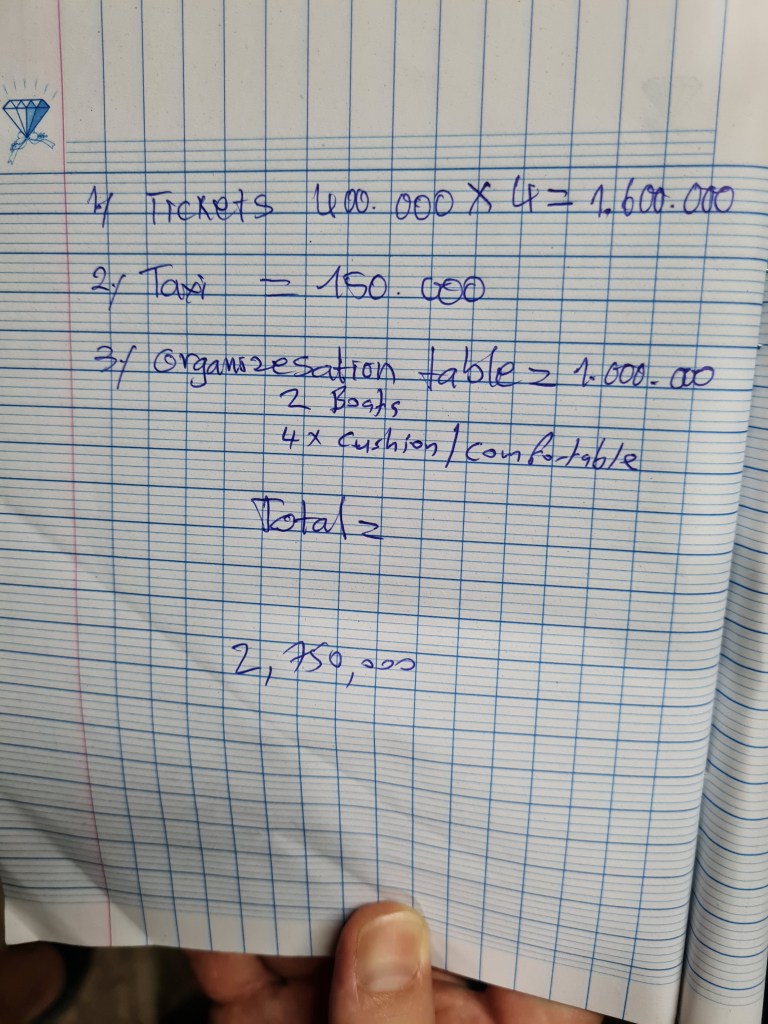 1/ Tickets 400.000 x 4 = 1.600.000
2/ Taxi = 150.000
3/ Organizesation table = 1.000.00
2 Boats
4x cushion/comfortable
Total =
2,750,000